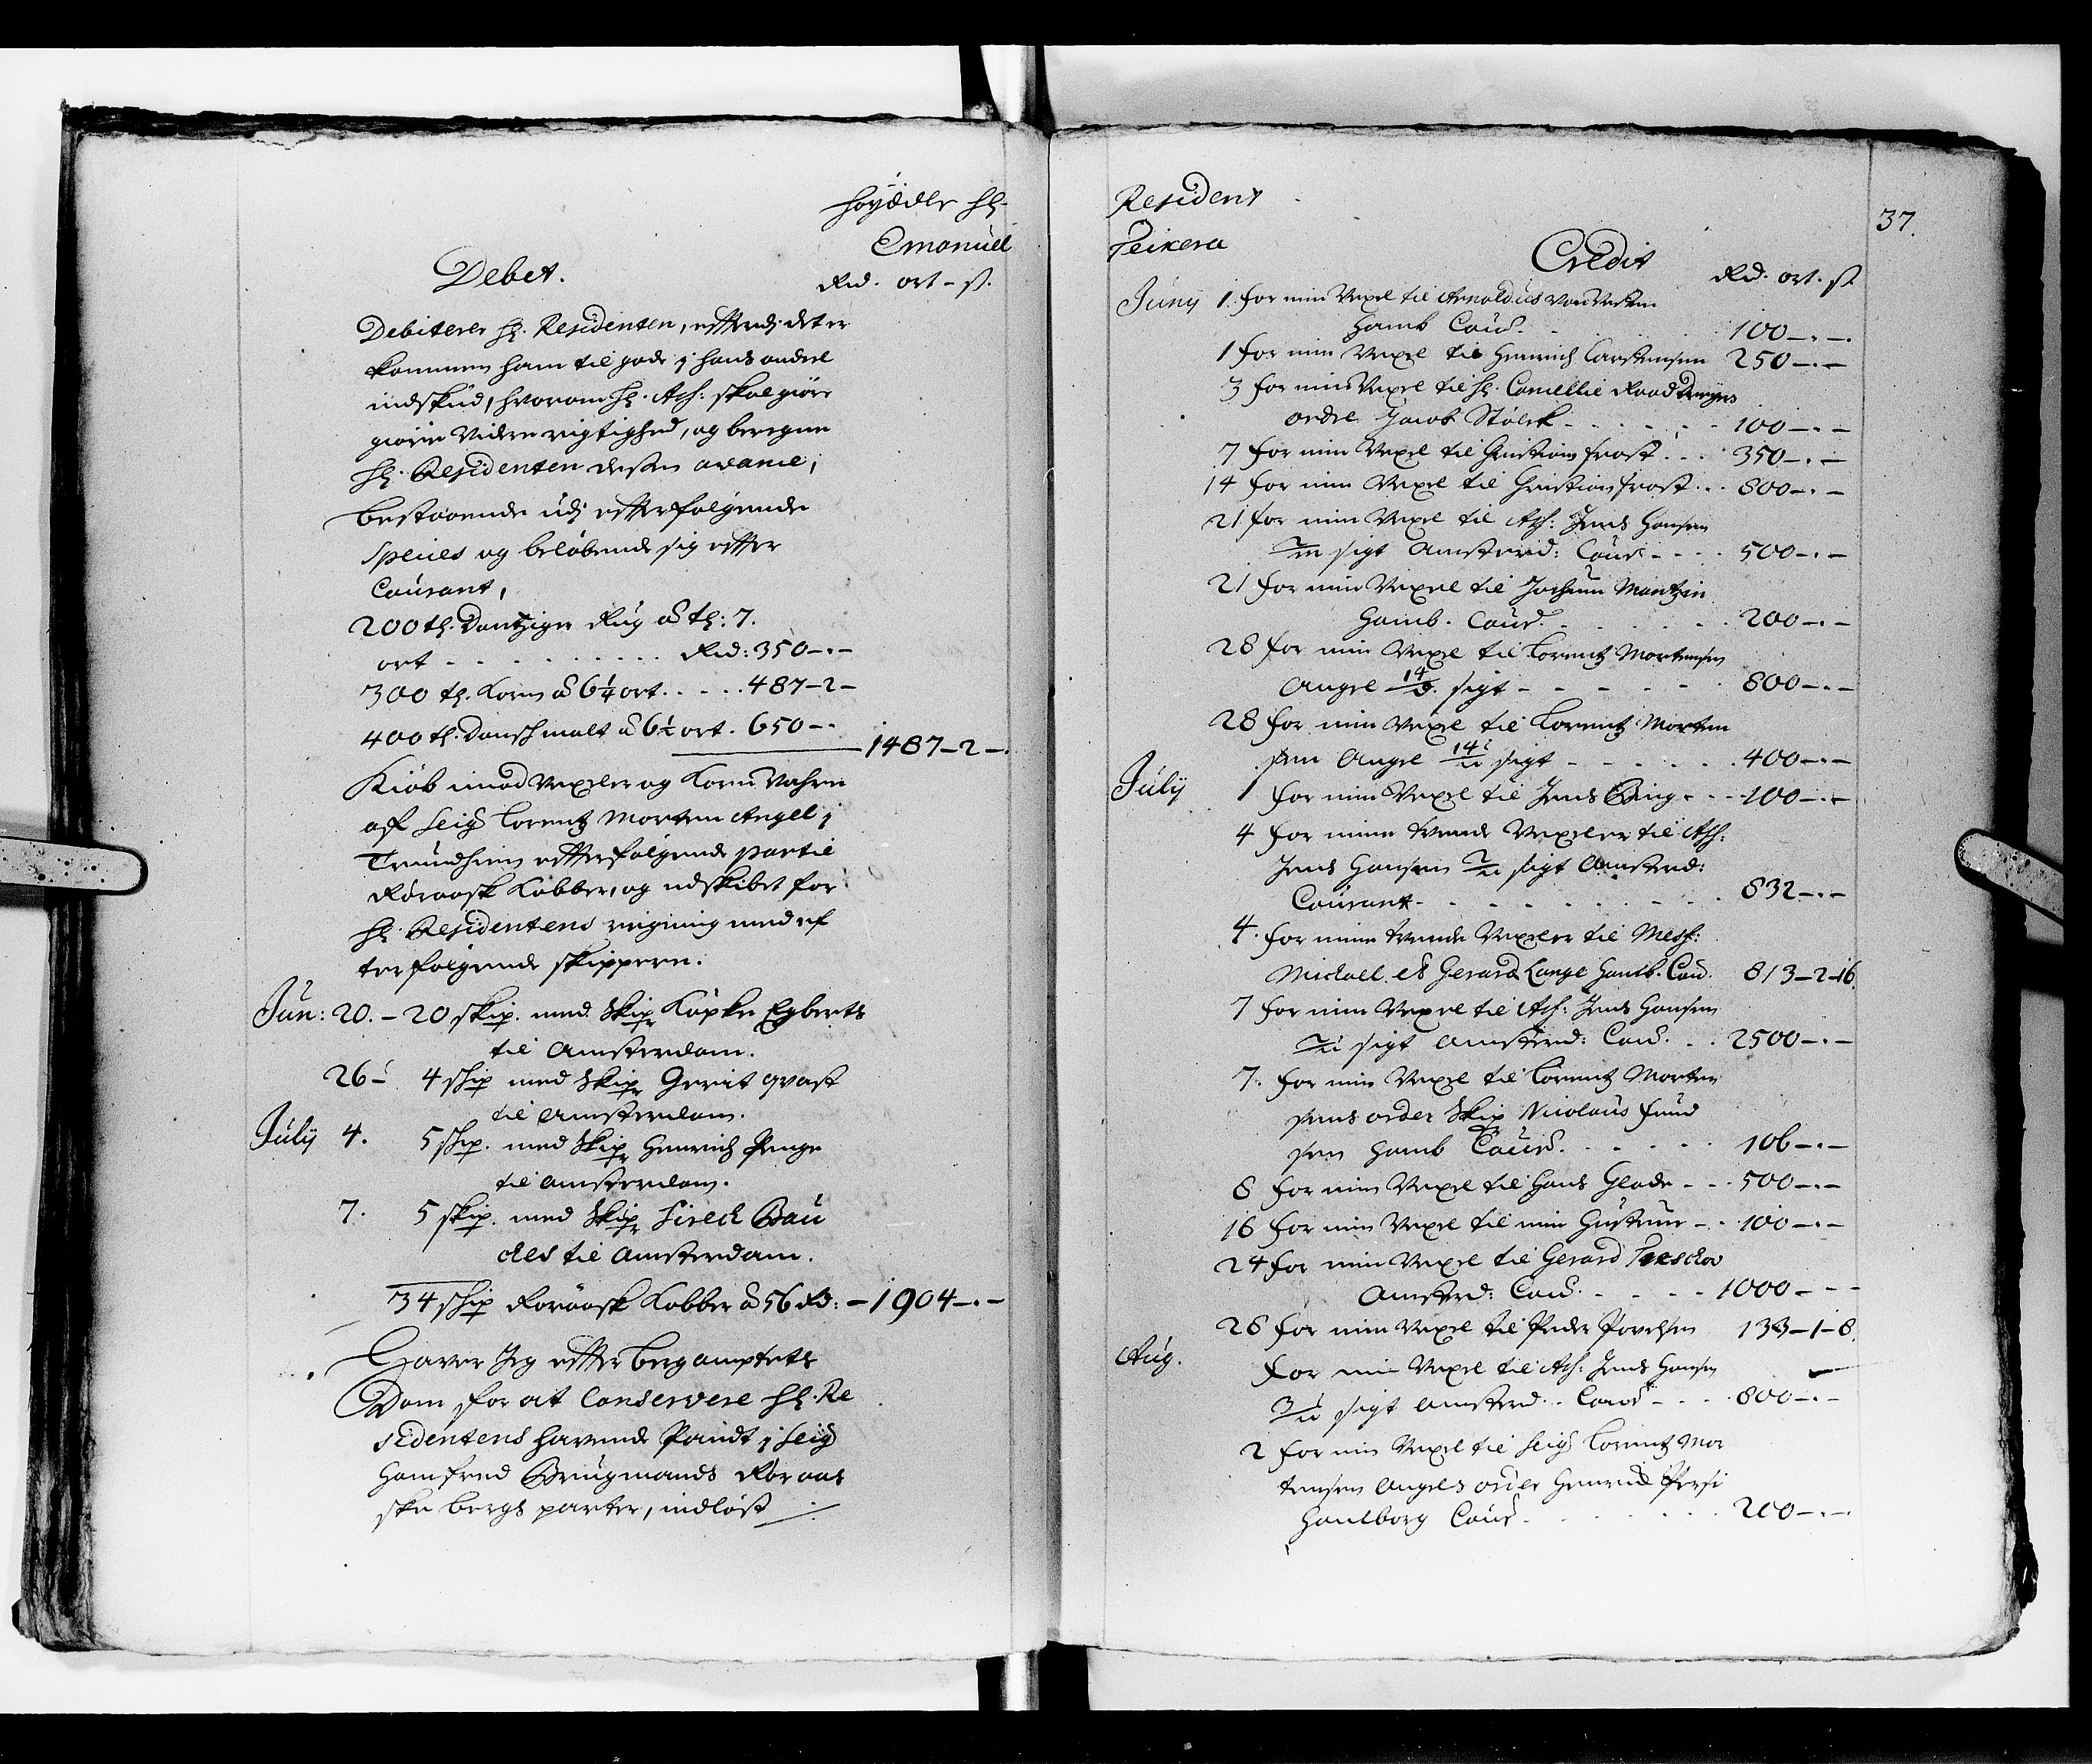 Høyædle Hr.
Emanuel
Debet.
Rd. ort - s.
Debiterer Hr. Residenten, efftersom det er
kommen ham til gode j hans andeel
indskud, hvorom Hr. Ass: skal giøre
giøre videre rigtighed, og beregne
Hr. Residenten dessen avance,
bestaaende udj effterfølgende
Species og beløbende sig effter
Courant,
200 tr. Dantziger Rug a tr: 7.
ort - - - Rd: 350-.-
300 tr. Korn a 6¼ ort . . . . 487-2-
400 tr. Dansch malt a 6½ ort . 650-.
1487-2-.
Kiøb imod Vexeler og Korn Vahre
af Seigr Lorentz Morten Angel j
Trundhiem effterfølgende partie
Røraask Kobber, og udskibet for
Hr. Residentens regning med ef
terfølgende skippere.
Jun: 20. - 20 skip. med Skipr Køpke Egberts
til Amsterdam.
26- 4 skip med Skipr Gerrit qvast
til Amsterdam.
July 4. 5 skip. med Skipr Henrich
til Amsterdam.
7. 5 skip. med Skipr Sireck Bau
ckes til Amsterdam.
34 skip Røraask Kobber a 56 Rd: - 1904-.-
Haver Jeg effter bergamptets
Dom for at Conservere Hr. Re
sidentens havende Pandt j Seigr
Hamfred Brügmands Røraas
ske bergs parter, indløst
Resident
Teixera
37.
Credit
Rd. ort. s.
Juny 1. for min Vexel til Arnoldus von
Hamb Cour. 100-.-.
1 for min Vexel til Henrich Carstensen 250-.-
3 for min Vexel til Hr. Cancellie Raad
ordre Jacob Stølck - - - 100-.-
7 for min Vexel til Christian frost . . . 350-.-
14 for min Vexel til Christian frost . . . 800-.-
21 for min Vexel til Ass: Jens Hansen
sigt Amsterd: Cour - - - 500-.-
21 for min Vexel til Jochum Mantzin
Hamb. Cour. 200-.-
28 for min Vexel til Lorentz Mortensen
Angel 14/d. sigt - - - 800-.-
28 for min Vexel til Lorentz Morten
sen Angel sigt - - - 400-.-
July 1 for min Vexel til Jens Bing - - - 100-.-
4 for mine tvende Vexeler til Ass:
Jens Hansen sigt Amsterd:
Courant - - - 832-.-
4. for mine tvende Vexeler til Mess:
Michael et Gerard Lange Hamb. Cour. 813-2-16.
7 for min Vexel til Ass: Jens Hansen
sigt Amsterd: Cour. . . 2500-.-
7. for min Vexel til Lorentz Morten
sens order Skipr Nicolaus
sen Hamb Cour. 106-.-
8 for min Vexel til Hans Glade - - - 500-.-
16 for min Vexel til min Hustrue - . 100-.-
24 for min Vexel til Gerard Treschov
Amsterd: Cour. - - - 1000 - - -
28 for min Vexel til Peder Povelsen 133-1-8.
Aug. for min Vexel til Ass: Jens Hansen
sigt Amsterd. Cour - - - 800-.-
2 for min Vexel til Seigr Lorentz Mor
tensen Angels order Henrich
Cour - - - 200-.-.